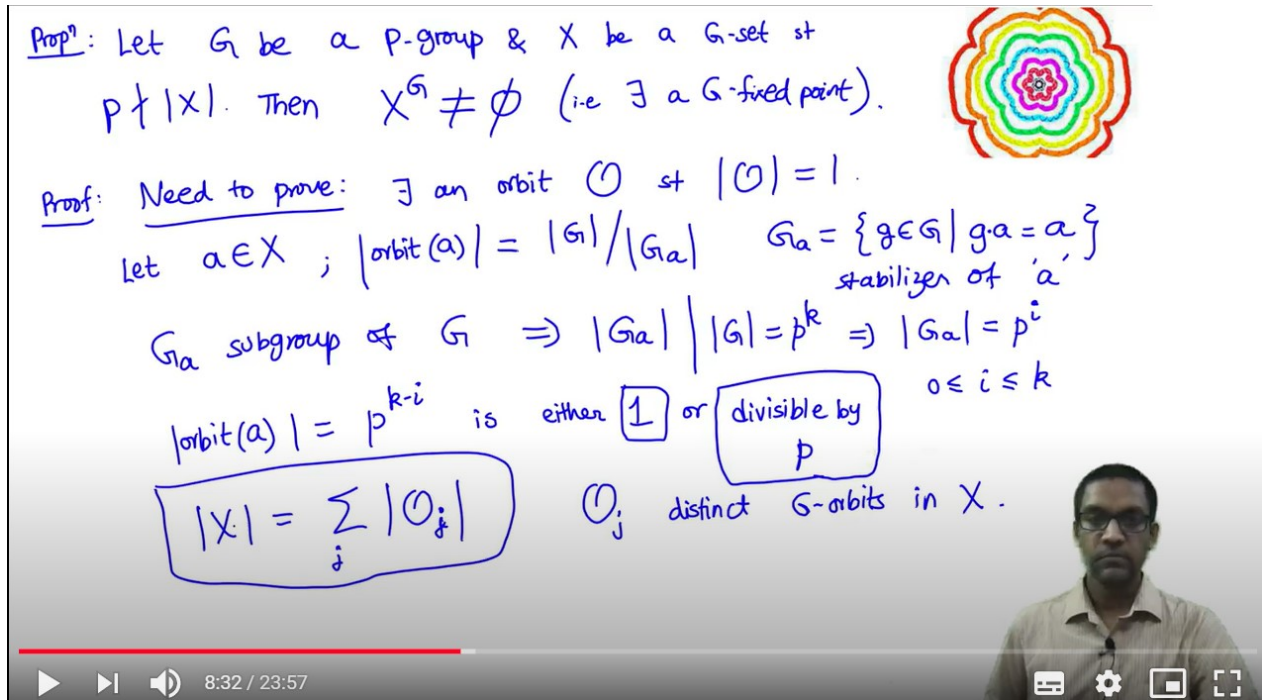 Propⁿ: Let G be a p-group & X be a G-set st
p∤|X|. Then X^G ≠ ∅ (i.e ∃ a G-fixed point).
Proof: Need to prove: ∃ an orbit O st |O| = 1.
Let a∈X ; |orbit(a)| = |G|/|Ga| Ga = {g∈G| g·a = a}
stabilizer of 'a'
Ga subgroup of G ⇒ |Ga| | |G| = p^k ⇒ |Ga| = p^i
0 ≤ i ≤ k
|orbit(a)| = p^{k-i} is either 1 or divisible by
p
|X| = Σ_j |O_j| O_j distinct G-orbits in X.
8:32 / 23:57